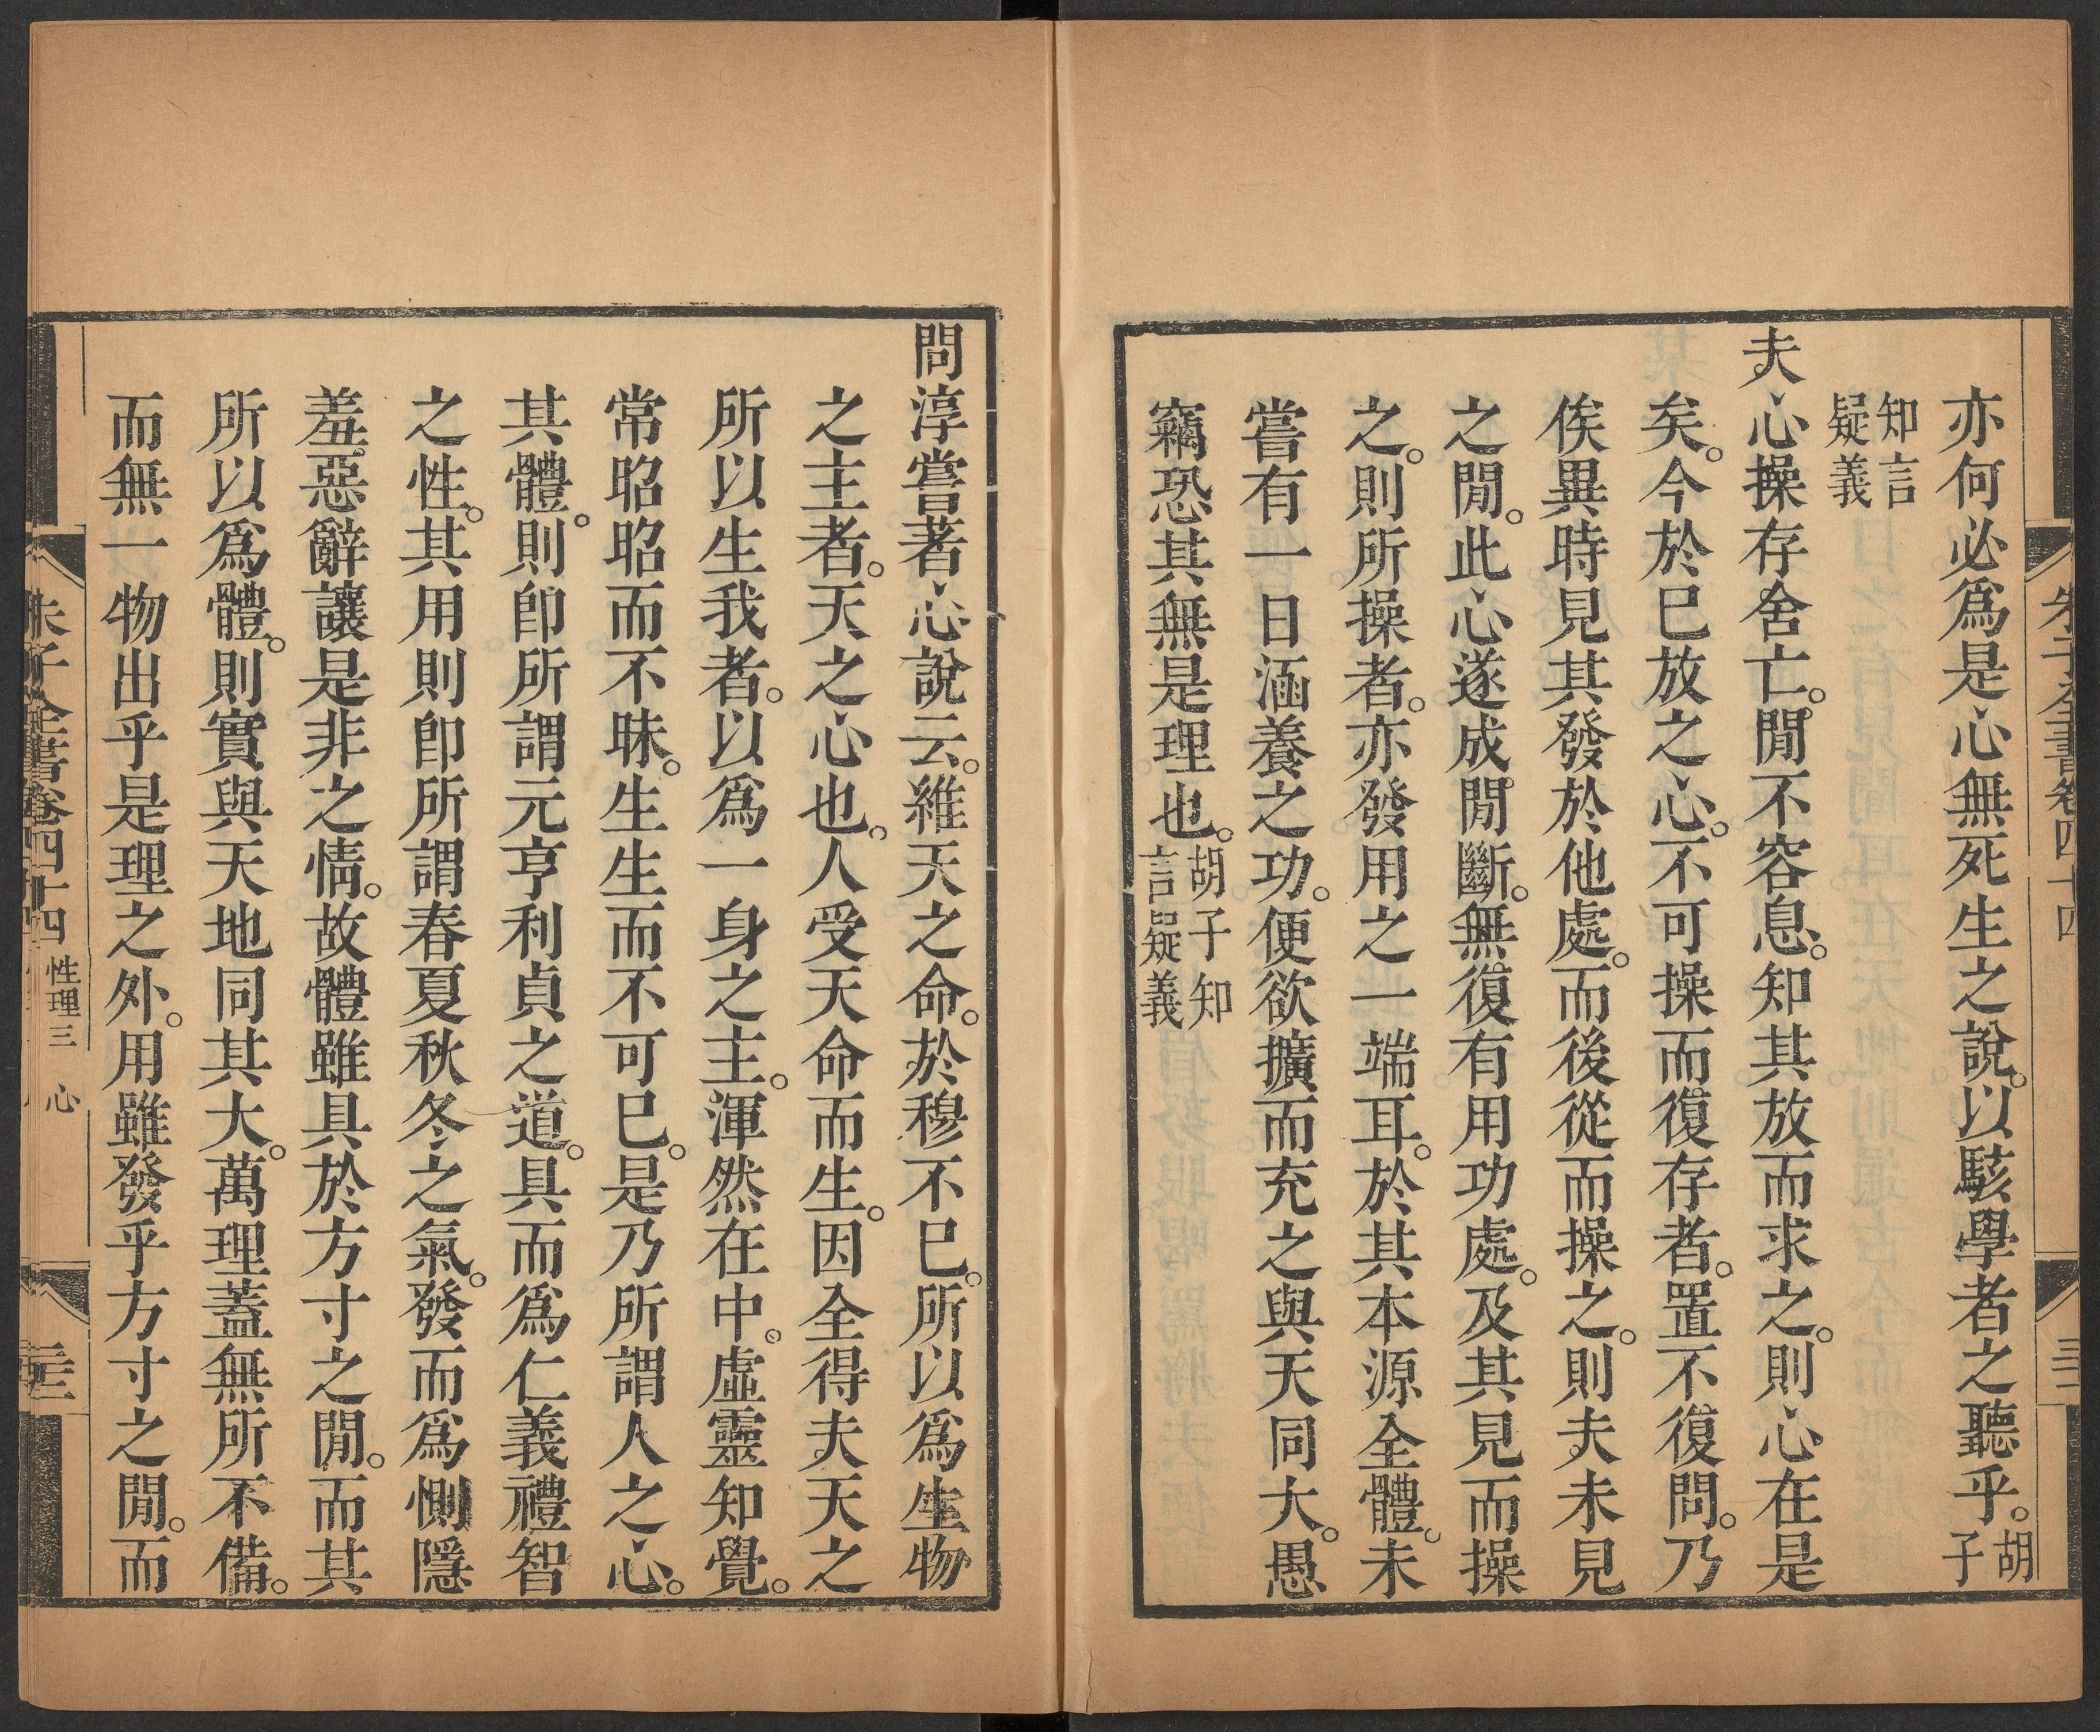 亦何必爲是心無死生之說。以駭學者之聽乎。胡子
知言疑義
夫心操存舍亡。閒不容息。知其放而求之。則心在是
矣。今於已放之心。不可操而復存者。置不復問。乃
俟異時見其發於他處。而後從而操之。則夫未見
之閒。此心遂成閒斷。無復有用功處。及其見而操
之。則所操者。亦發用之一端耳。於其本源全體。未
嘗有一日涵養之功。便欲擴而充之與天同大。愚
竊恐其無是理也。胡子知言疑義
問淳嘗著心說云。維天之命。於穆不已。所以爲生物
之主者。天之心也。人受天命而生。因全得夫天之
所以生我者。以爲一身之主。渾然在中。虛靈知覺。
常昭昭而不昧。生生而不可已。是乃所謂人之心。
其體。則卽所謂元亨利貞之道。具而爲仁義禮智
之性。其用則卽所謂春夏秋冬之氣。發而爲惻隱
羞惡辭讓是非之情。故體雖具於方寸之閒。而其
所以爲體。則實與天地同其大。萬理蓋無所不備。
而無一物出乎是理之外。用雖發乎方寸之閒。而
朱子全書卷四十四 性理三 心